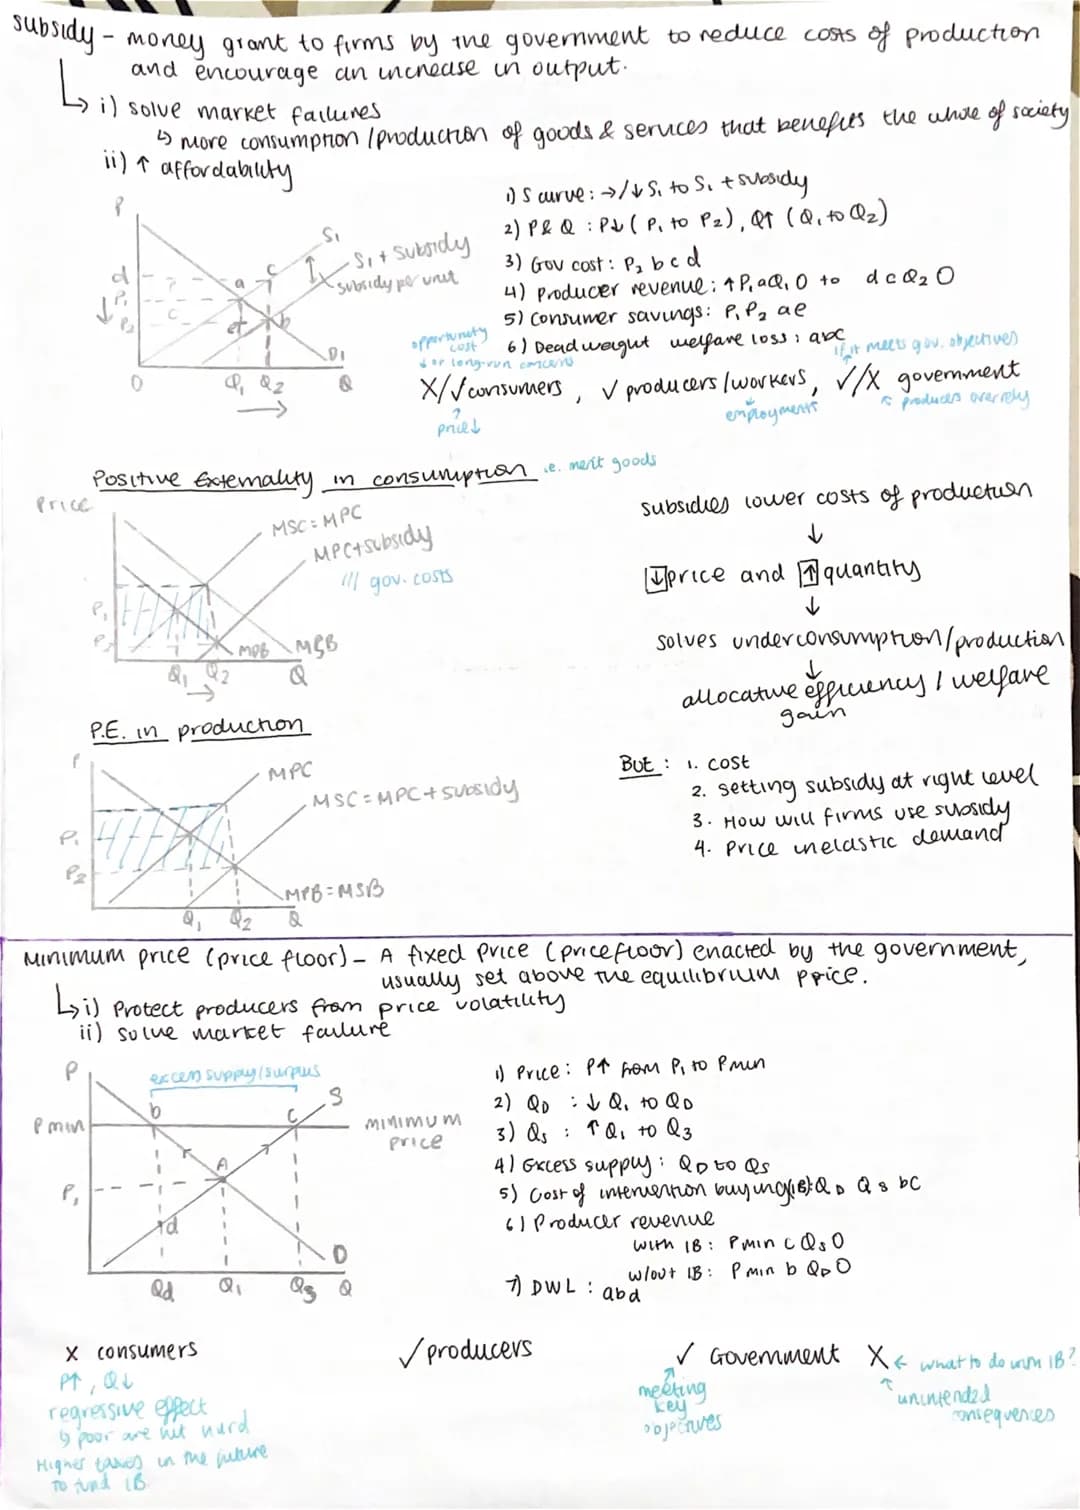 subsidy - money grant to firms by the government to reduce costs of production
and encourage an increase in output.
↳ i) solve market failures
↳ more consumption / production of goods & services that benefits the whole of society
ii) ↑ affordability
P
S₁
S₁ + Subsidy
subsidy per unit
d
P₁
P₂
a
c
b
e
D₁
0
Q₁ Q₂
Q
1) S curve: →/↓ S₁ to S₁ + subsidy
2) P & Q : P↓ (P₁ to P₂), Q↑ (Q₁ to Q₂)
3) Gov cost: P₂ b c d
4) producer revenue: ↑ P₁aQ₁O to dcQ₂O
5) Consumer savings: P₁P₂ ae
6) Deadweight welfare loss: abc
opportunity cost
↓ or long-run concerns
if it meets gov. objectives
X/✓consumers, ✓ producers/workers, ✓/X government
price↓
employment
↖ producers over rely
Positive Externality in consumption i.e. merit goods
Price
MSC = MPC
MPC+subsidy
/// gov. costs
P₁
P₂
MPB
MSB
Q₁ Q₂
Q
subsidies lower costs of production
↓
↓price and ↑quantity
↓
solves underconsumption/production
↓
allocative efficiency / welfare
gain
P.E. in production
P
MPC
MSC = MPC + subsidy
P₁
P₂
MPB = MSB
Q₁ Q₂ Q
But : 1. cost
2. setting subsidy at right level
3. How will firms use subsidy
4. Price inelastic demand
Minimum price (price floor) - A fixed price (price floor) enacted by the government,
usually set above the equilibrium price.
↳ i) Protect producers from price volatility
ii) solve market failure
P
excess supply/surplus
b
c
S
P min
minimum
price
A
P₁
d
D
Qd
Q₁
Q₃
Q
1) Price: P↑ from P₁ to Pmin
2) QD : ↓ Q₁ to QD
3) Qs : ↑ Q₁ to Q3
4) Excess supply: QD to Qs
5) Cost of intervention buying(IB): QD Qs bC
6) Producer revenue
with IB: Pmin c Qs O
w/out IB: Pmin b QD O
7) DWL : abd
X consumers
P↑, Q↓
regressive effect
↳ poor are hit hard
Higher taxes in the future
to fund IB.
✓ producers
✓ Government X ← what to do with IB?
meeting
key
objectives
unintended
consequences